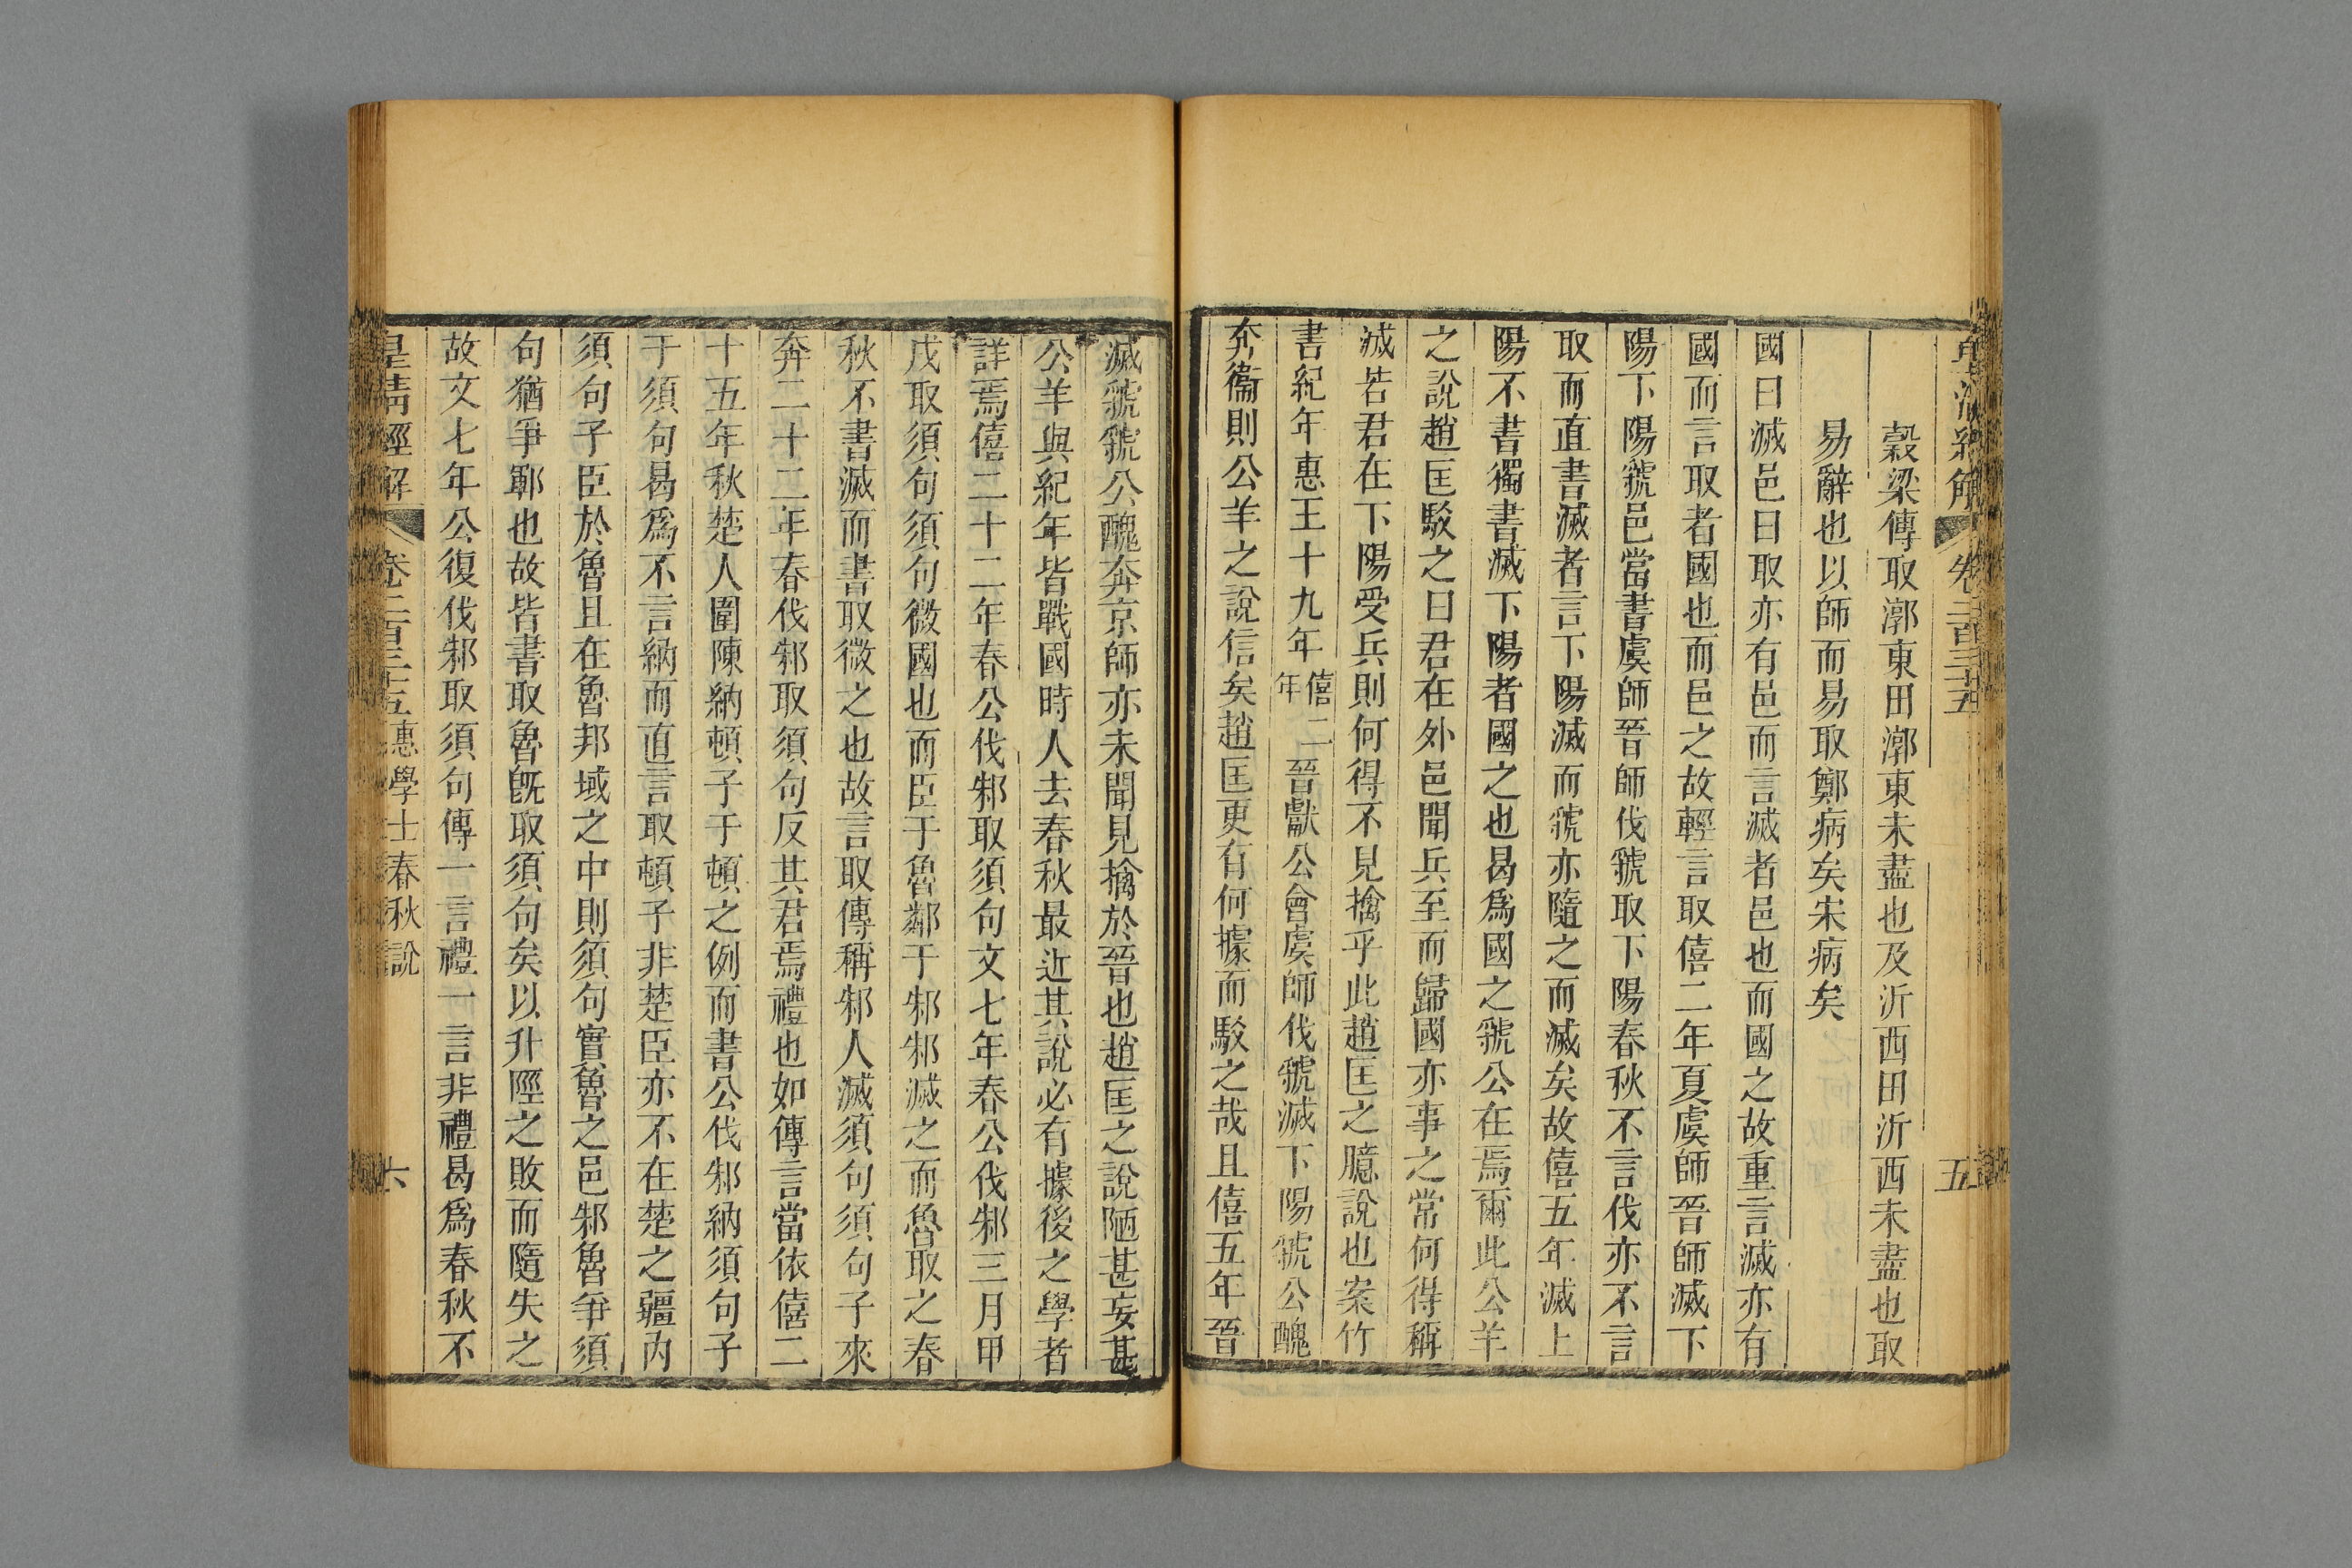 皇清經解 卷二百三十五 五
穀梁傳取漷東田漷東未盡也及沂西田沂西未盡也取
易辭也以師而易取鄭病矣宋病矣
國曰滅邑曰取亦有邑而言滅者邑也而國之故重言滅亦有
國而言取者國也而邑之故輕言取僖二年夏虞師晉師滅下
陽下陽虢邑當書虞師晉師伐虢取下陽春秋不言伐亦不言
取而直書滅者言下陽滅而虢亦隨之而滅矣故僖五年滅上
陽不書獨書滅下陽者國之也曷爲國之虢公在焉爾此公羊
之說趙匡駁之曰君在外邑聞兵至而歸國亦事之常何得稱
滅若君在下陽受兵則何得不見擒乎此趙匡之臆說也案竹
書紀年惠王十九年僖二年晉獻公會虞師伐虢滅下陽虢公醜
奔衞則公羊之說信矣趙匡更有何據而駁之哉且僖五年晉
滅虢虢公醜奔京師亦未聞見擒於晉也趙匡之說陋甚妄甚
公羊與紀年皆戰國時人去春秋最近其說必有據後之學者
詳焉僖二十二年春公伐邾取須句文七年春公伐邾三月甲
戌取須句須句微國也而臣于魯鄰于邾邾滅之而魯取之春
秋不書滅而書取微之也故言取傳稱邾人滅須句須句子來
奔二十二年春伐邾取須句反其君焉禮也如傳言當依僖二
十五年秋楚人圍陳納頓子于頓之例而書公伐邾納須句子
于須句曷爲不言納而直言取頓子非楚臣亦不在楚之疆內
須句子臣於魯且在魯邦域之中則須句實魯之邑邾魯爭須
句猶爭鄆也故皆書取魯旣取須句矣以升陘之敗而隨失之
故文七年公復伐邾取須句傳一言禮一言非禮曷爲春秋不
皇清經解 卷二百三十五 惠學士春秋說 六